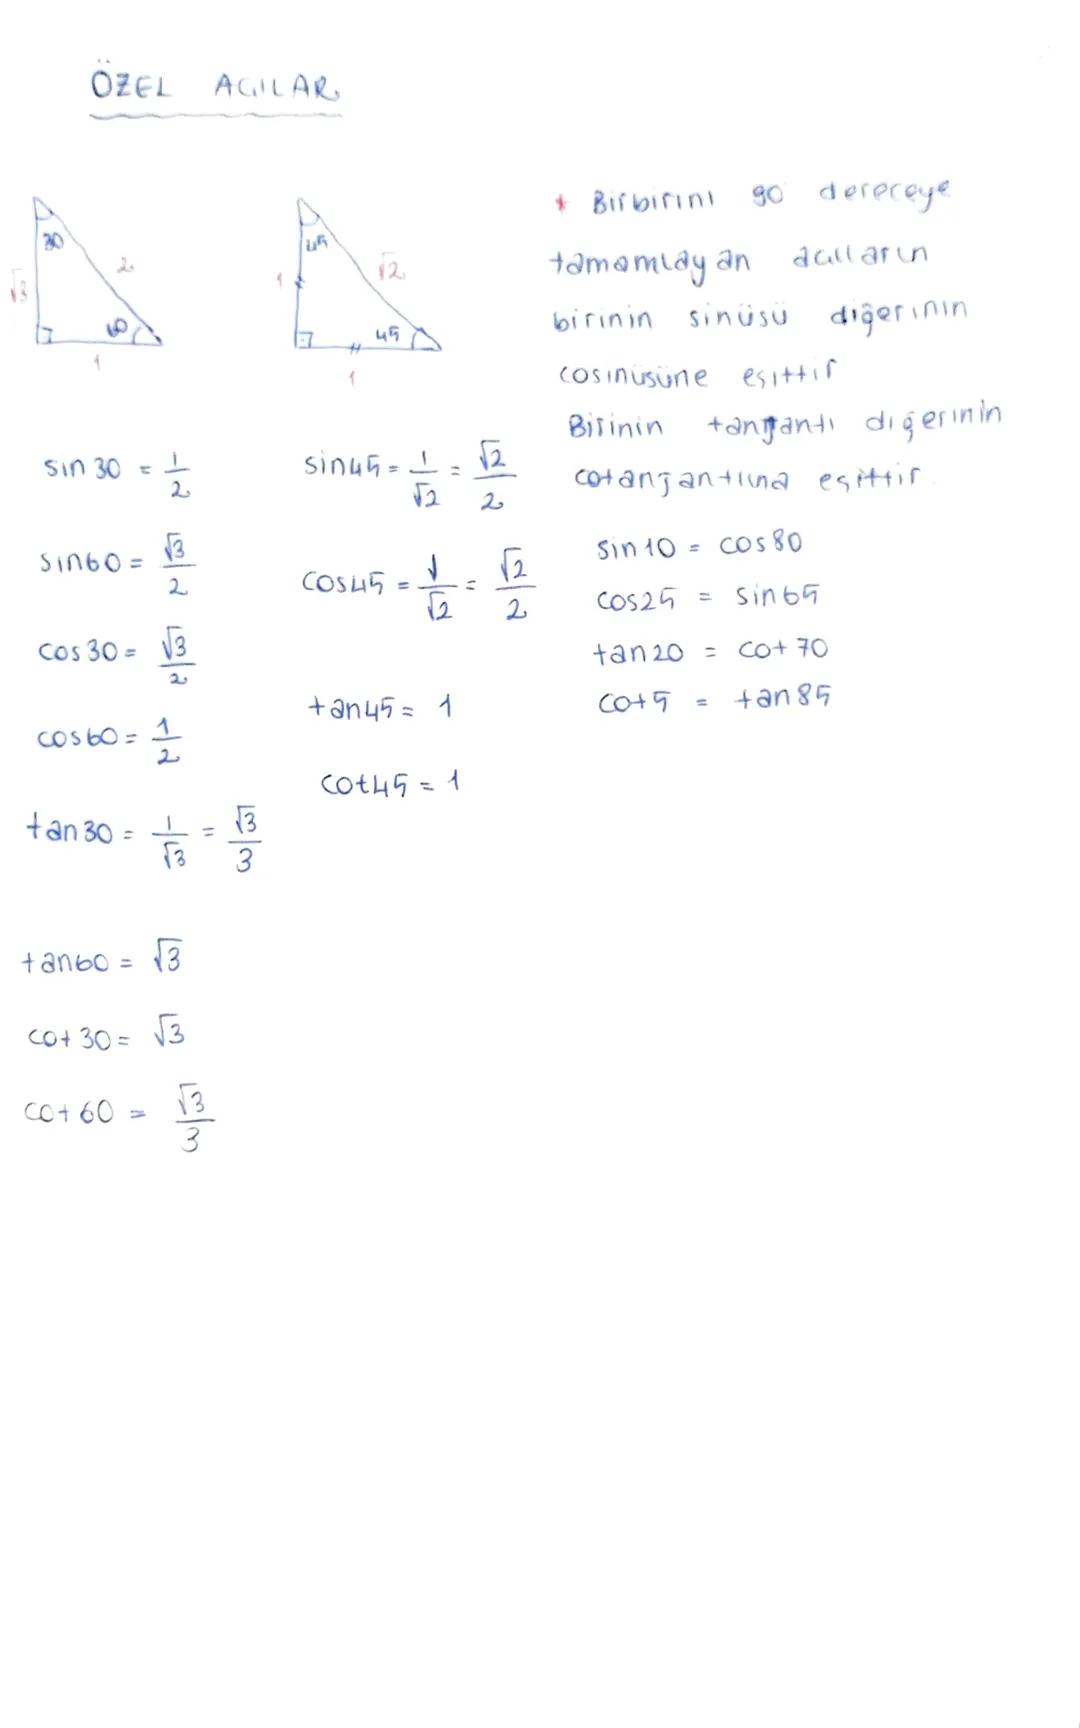 ÖZEL AÇILAR
30
2
√3
60
1
45
√2
1
45
1
sin 30 = 1/2
sin60 = √3/2
cos 30 = √3/2
cos60 = 1/2
tan 30 = 1/√3 = √3/3
tan60 = √3
cot 30 = √3
cot 60 = √3/3
sin45 = 1/√2 = √2/2
cos45 = 1/√2 = √2/2
tan45 = 1
cot45 = 1
* Birbirini 90 dereceye
tamamlayan açıların
birinin sinüsü diğerinin
cosinüsüne eşittir
Birinin tanjantı diğerinin
cotanjantına eşittir.
sin 10 = cos 80
cos25 = sin65
tan 20 = cot 70
cot5 = tan 85